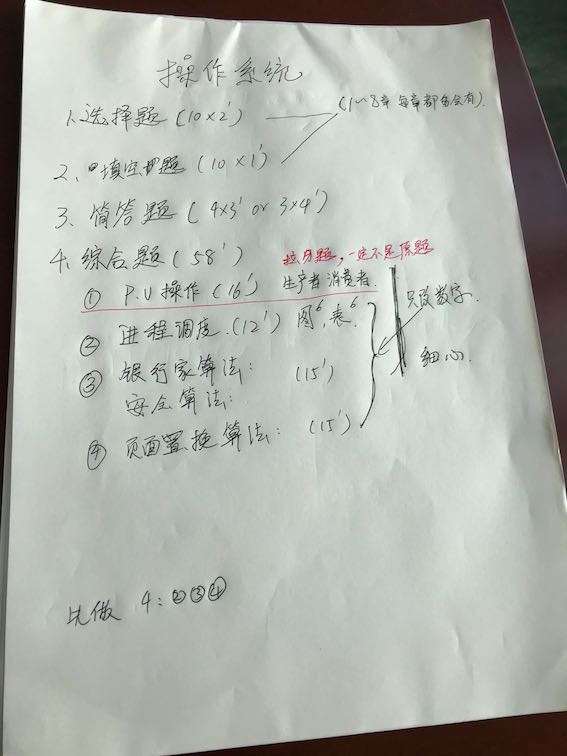 操作系统
1、选择题 (10×2') (1~8章 每章都会有).
2、填空题 (10×1')
3、简答题 (4×3' or 3×4')
4、综合题 (58')
拉分题，一定不是原题
① P.V 操作 (16') 生产者 消费者.
② 进程调度. (12') 图6', 表6'. 只改数字.
③ 银行家算法: (15') 细心.
安全算法:
④ 页面置换算法: (15')
先做 4: ②③④